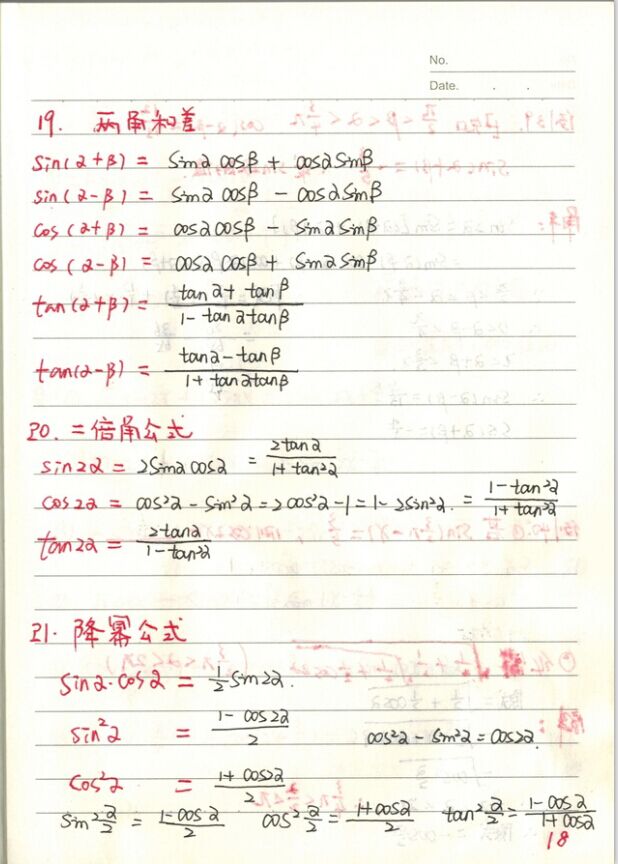 No.
Date. . .
19. 两角和差
sin(α+β) = sinα cosβ + cosα sinβ
sin(α-β) = sinα cosβ - cosα sinβ
cos(α+β) = cosα cosβ - sinα sinβ
cos(α-β) = cosα cosβ + sinα sinβ
tan(α+β) = (tanα + tanβ)/(1 - tanα tanβ)
tan(α-β) = (tanα - tanβ)/(1 + tanα tanβ)
20. 二倍角公式
sin2α = 2sinα cosα = 2tanα/(1 + tan²α)
cos2α = cos²α - sin²α = 2cos²α - 1 = 1 - 2sin²α. = (1 - tan²α)/(1 + tan²α)
tan2α = 2tanα/(1 - tan²α)
21. 降幂公式
sinα·cosα = 1/2 sin2α.
sin²α = (1 - cos2α)/2 cos²α - sin²α = cos2α.
cos²α = (1 + cos2α)/2
sin²α/2 = (1 - cosα)/2 cos²α/2 = (1 + cosα)/2 tan²α/2 = (1 - cosα)/(1 + cosα)
18